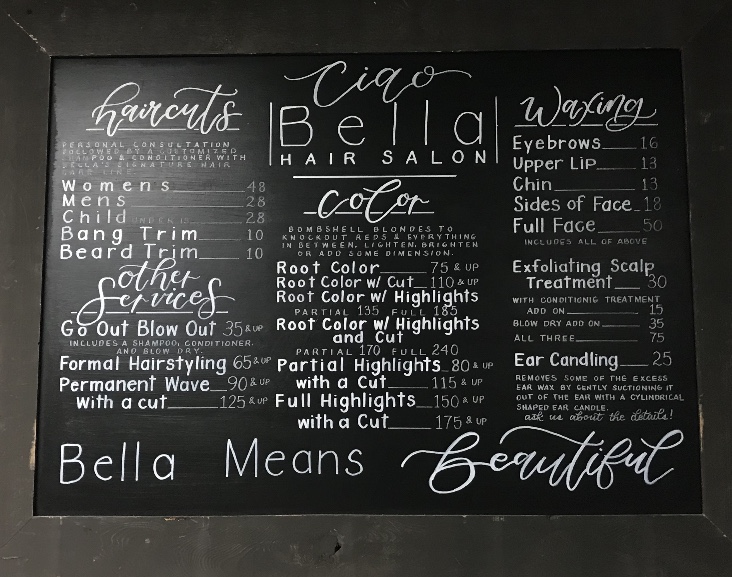 Ciao
Bella
HAIR SALON
haircuts
PERSONAL CONSULTATION
FOLLOWED BY A CUSTOMIZED
SHAMPOO & CONDITIONER WITH
BELLA'S SIGNATURE HAIR
CARE LINE
Womens 48
Mens 28
Child UNDER 12 28
Bang Trim 10
Beard Trim 10
other
Services
Go Out Blow Out 35 & UP
INCLUDES A SHAMPOO, CONDITIONER,
AND BLOW DRY.
Formal Hairstyling 65 & UP
Permanent Wave 90 & UP
with a cut 125 & UP
color
BOMBSHELL BLONDES TO
KNOCKOUT REDS & EVERYTHING
IN BETWEEN. LIGHTEN, BRIGHTEN
OR ADD SOME DIMENSION.
Root Color 75 & UP
Root Color w/ Cut 110 & UP
Root Color w/ Highlights
PARTIAL 135 FULL 185
Root Color w/ Highlights
and Cut
PARTIAL 170 FULL 240
Partial Highlights 80 & UP
with a Cut 115 & UP
Full Highlights 150 & UP
with a Cut 175 & UP
Waxing
Eyebrows 16
Upper Lip 13
Chin 13
Sides of Face 18
Full Face 50
INCLUDES ALL OF ABOVE
Exfoliating Scalp
Treatment 30
WITH CONDITIONIG TREATMENT
ADD ON 15
BLOW DRY ADD ON 35
ALL THREE 75
Ear Candling 25
REMOVES SOME OF THE EXCESS
EAR WAX BY GENTLY SUCTIONING IT
OUT OF THE EAR WITH A CYLINDRICAL
SHAPED EAR CANDLE.
ask us about the details!
Bella Means Beautiful